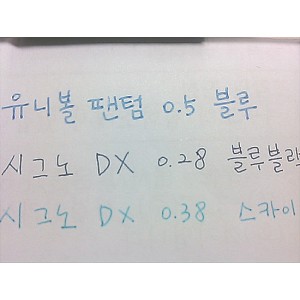 유니볼 팬텀 0.5 블루
시그노 DX 0.28 블루블랙
시그노 DX 0.38 스카이